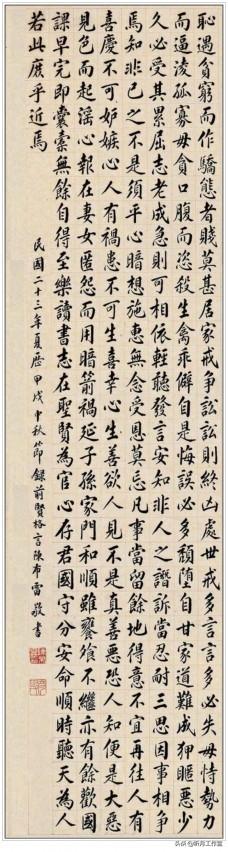 恥遇貧窮而作驕態者賤莫甚居家戒爭訟訟則終凶處世戒多言言多必失毋恃勢力
而逼淩孤寡毋貪口腹而恣殺生禽乖僻自是悔誤必多頹墮自甘家道難成狎暱惡少
久必受其累屈志老成急則可相依輕聽發言安知非人之譖訴當忍耐三思因事相爭
焉知非己之不是須平心暗想施惠無念受恩莫忘凡事當留餘地得意不宜再往人有
喜慶不可妒嫉心人有禍患不可生喜幸心生善欲人見不是真善惡恐人知便是大惡
見色而起淫心報在妻女匿怨而用暗箭禍延子孫家門和順雖饔飧不繼亦有餘歡國
課早完即囊橐無餘自得至樂讀書志在聖賢為官心存君國守分安命順時聽天為人
若此庶乎近焉
民國二十三年夏歷甲戌中秋節錄前賢格言陳布雷敬書
头条 @听月工作室